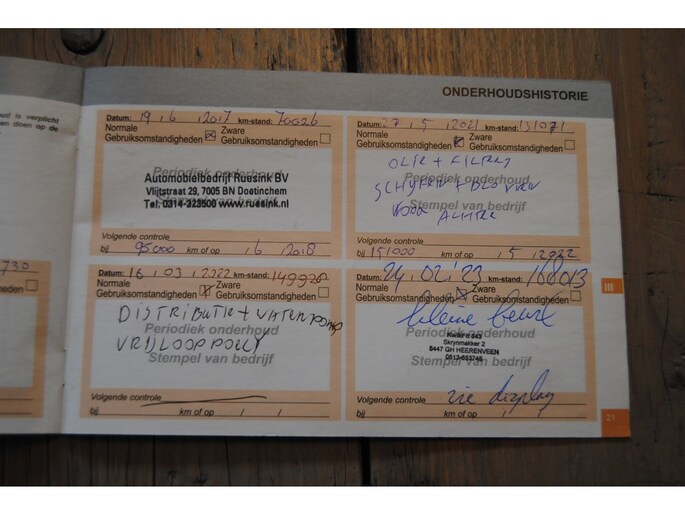 ud is verplicht
en doen op de
730
heden
heden
ONDERHOUDSHISTORIE
Datum: 19, 6, 2017 km-stand: 70026
Normale Gebruiksomstandigheden ☒ Zware Gebruiksomstandigheden ☐
Periodiek onderhoud
Automobielbedrijf Ruesink BV
Vlijtstraat 29, 7005 BN Doetinchem
Tel: 0314-323500 www.ruesink.nl
Stempel van bedrijf
Volgende controle
bij 95000 km of op / 6 / 2018
Datum: 27, 5, 2021 km-stand: 131071
Normale Gebruiksomstandigheden ☒ Zware Gebruiksomstandigheden ☐
OLIE + FILTERS
Periodiek onderhoud
SCHIJVEN + BLOKKEN
Stempel van bedrijf
VOOR ACHTER
Volgende controle
bij 151000 km of op / 5 / 2022
Datum: 16, 03, 2022 km-stand: 149920
Normale Gebruiksomstandigheden ☒ Zware Gebruiksomstandigheden ☐
DISTRIBUTIE + WATERPOMP
Periodiek onderhoud
VRIJLOOP POLLY
Stempel van bedrijf
Volgende controle
bij km of op / /
Datum: 24, 02, '23 km-stand: 168013
Normale Gebruiksomstandigheden ☒ Zware Gebruiksomstandigheden ☐
kleine beurt
Periodiek onderhoud
KwikFit 643
Skrynmakker 2
8447 GH HEERENVEEN
Stempel van bedrijf
Volgende controle zie display
bij km of op / /
III
21